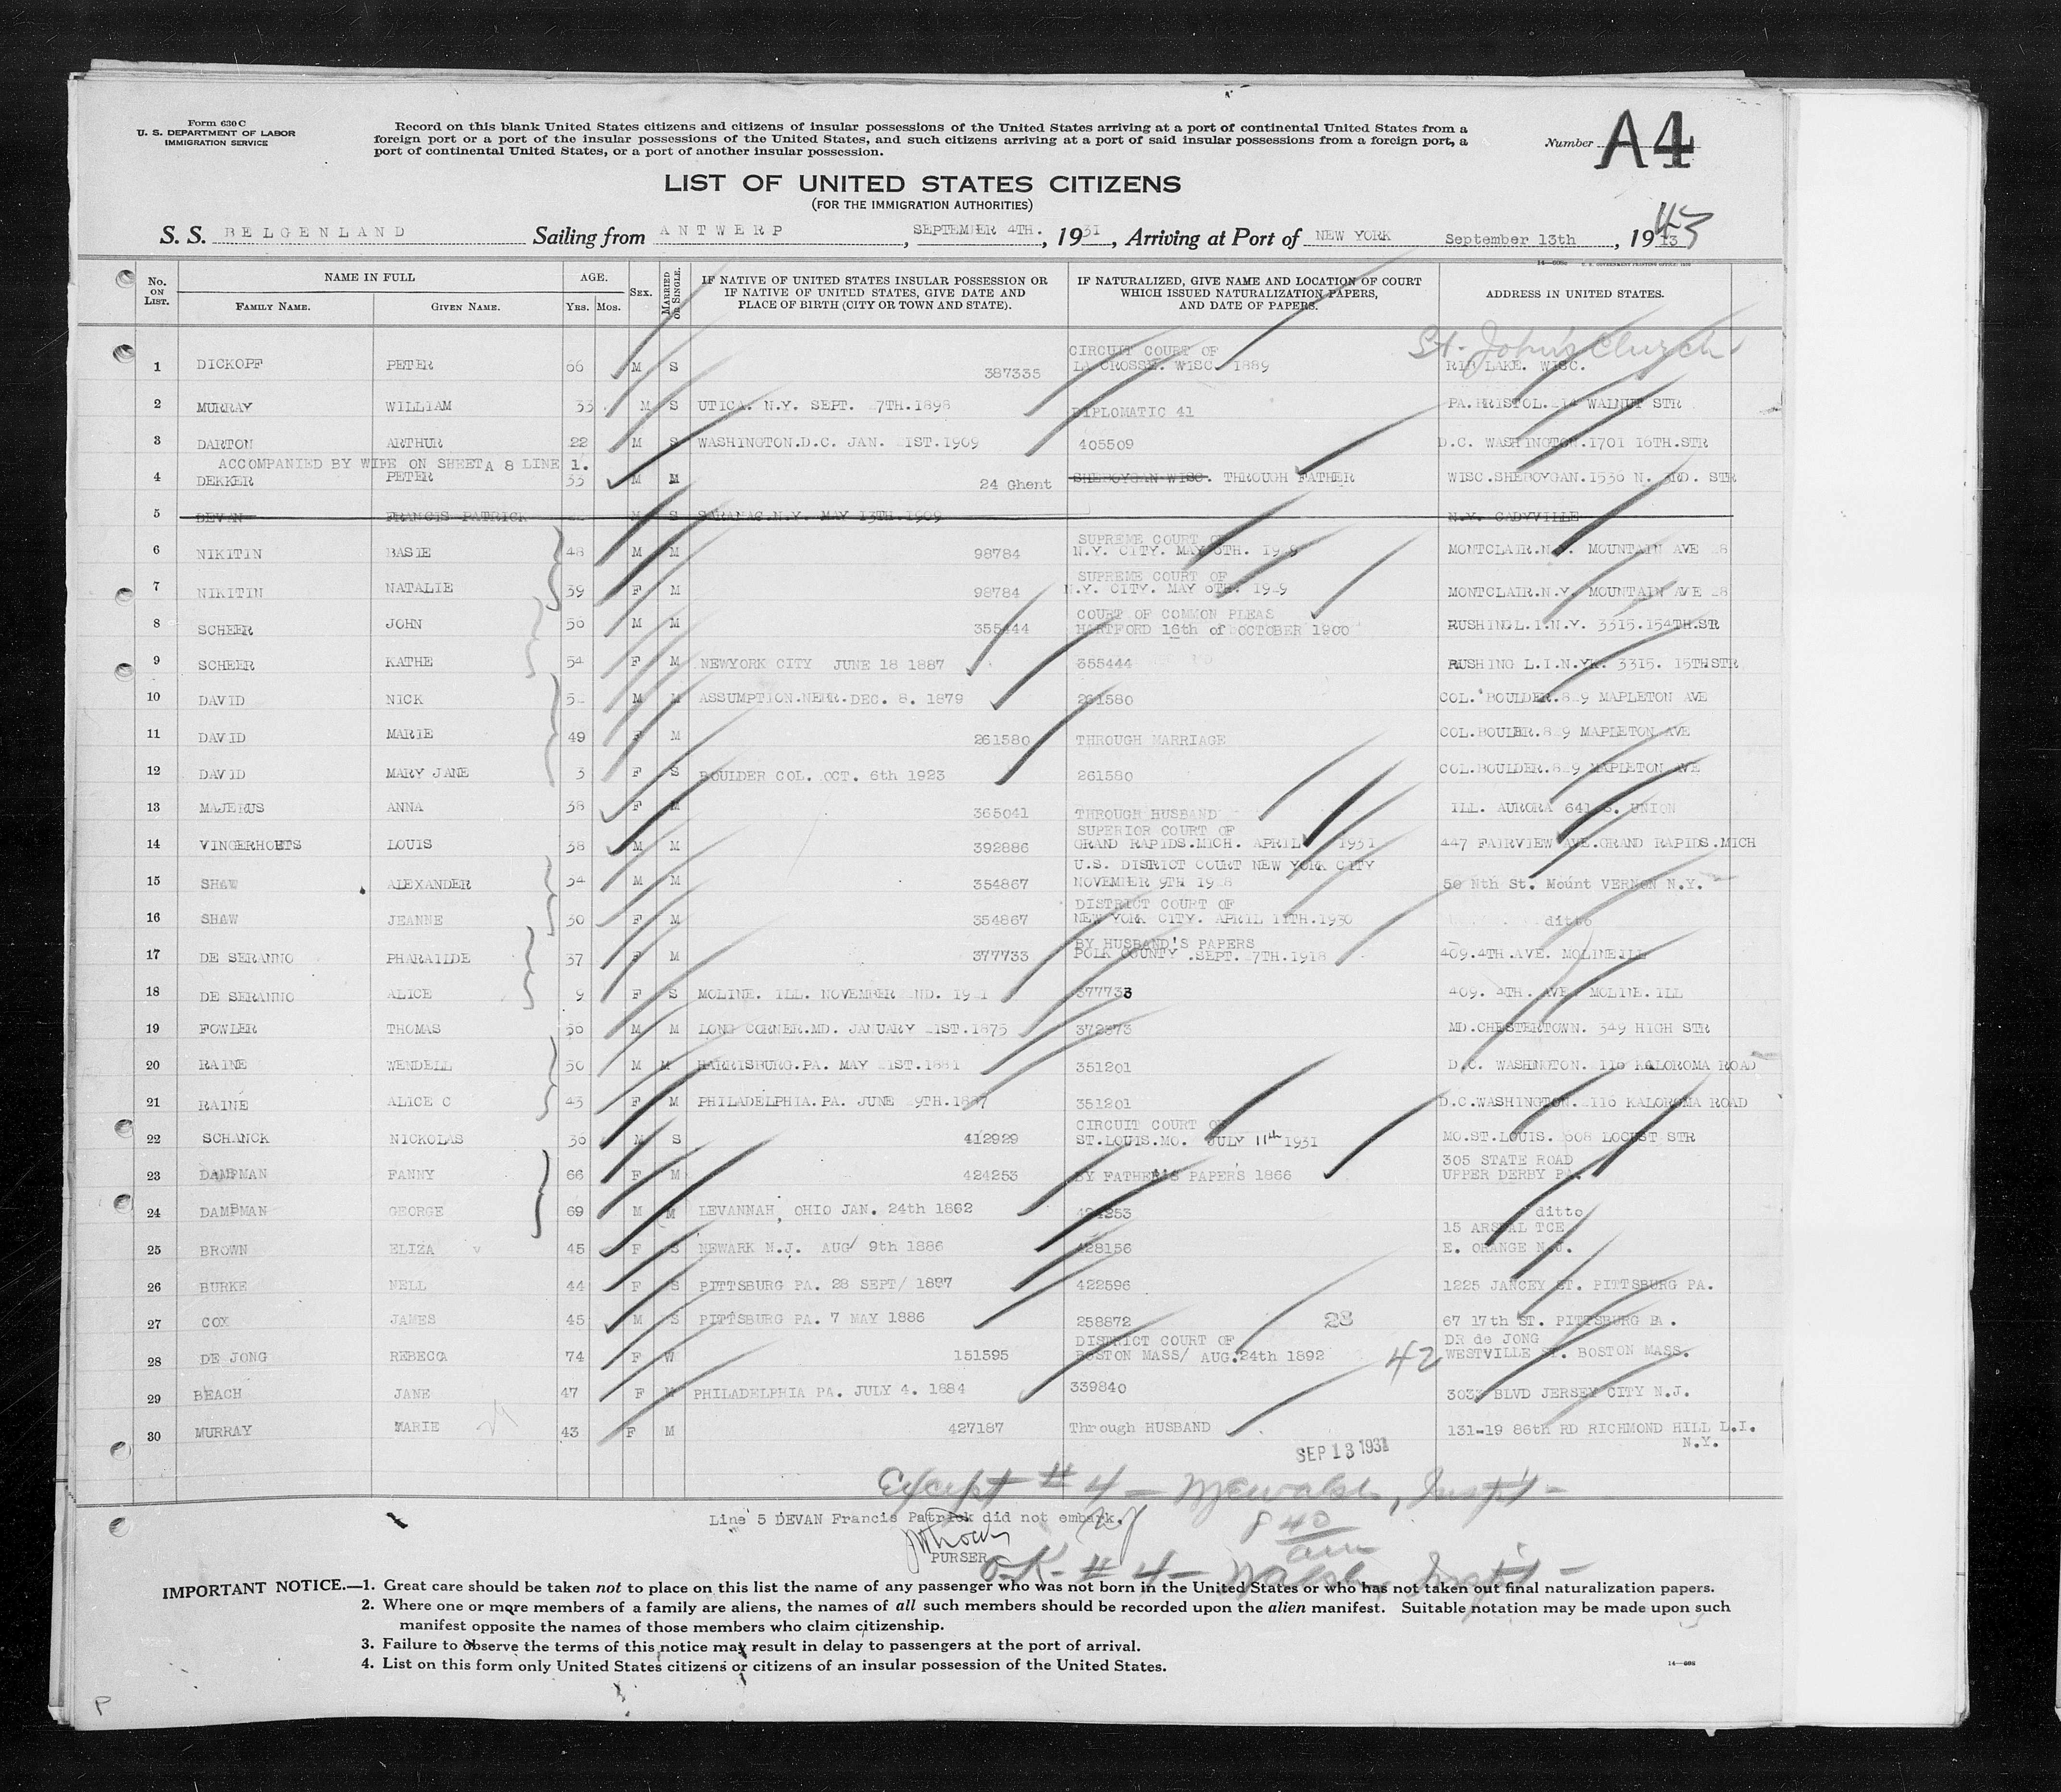 Form 630 C
U. S. DEPARTMENT OF LABOR
IMMIGRATION SERVICE
Record on this blank United States citizens and citizens of insular possessions of the United States arriving at a port of continental United States from a
foreign port or a port of the insular possessions of the United States, and such citizens arriving at a port of said insular possessions from a foreign port, a
port of continental United States, or a port of another insular possession.
Number A4
LIST OF UNITED STATES CITIZENS
(FOR THE IMMIGRATION AUTHORITIES)
43
S. S. BELGENLAND Sailing from ANTWERP, SEPTEMBER 4TH., 1931, Arriving at Port of NEW YORK September 13th, 19
No. ON LIST. NAME IN FULL FAMILY NAME. GIVEN NAME. AGE. Yrs. Mos. SEX. MARRIED OR SINGLE. IF NATIVE OF UNITED STATES INSULAR POSSESSION OR IF NATIVE OF UNITED STATES, GIVE DATE AND PLACE OF BIRTH (CITY OR TOWN AND STATE). IF NATURALIZED, GIVE NAME AND LOCATION OF COURT WHICH ISSUED NATURALIZATION PAPERS, AND DATE OF PAPERS. ADDRESS IN UNITED STATES.
CIRCUIT COURT OF St. John's Church
1 DICKOPF PETER 66 M S 387335 LA CROSSE. WISC. 1889 RIB LAKE. WISC.
2 MURRAY WILLIAM 33 M S UTICA. N.Y. SEPT. 7TH.1898 DIPLOMATIC 41 PA.BRISTOL. 214 WALNUT STR
3 DARTON ARTHUR 22 M S WASHINGTON.D.C. JAN. 21ST.1909 405509 D.C. WASHINGTON.1701 16TH.STR
ACCOMPANIED BY WIFE ON SHEET A 8 LINE 1.
4 DEKKER PETER 33 M M 24 Ghent SHEBOYGAN WISC. THROUGH FATHER WISC.SHEBOYGAN.1536 N. 3RD. STR
5 DEVAN FRANCIS PATRICK M S SARANAC.N.Y. MAY 13TH.1909 N.Y. CADYVILLE
SUPREME COURT OF
6 NIKITIN BASIE 48 M M 98784 N.Y. CITY. MAY 6TH. 1929 MONTCLAIR.N.Y. MOUNTAIN AVE 28
SUPREME COURT OF
7 NIKITIN NATALIE 39 F M 98784 N.Y. CITY. MAY 6TH. 1929 MONTCLAIR.N.Y. MOUNTAIN AVE 28
COURT OF COMMON PLEAS
8 SCHEER JOHN 56 M M 355444 HARTFORD 16th of OCTOBER 1900 RUSHING L.I.N.Y. 3315.154TH.STR
9 SCHEER KATHE 54 F M NEWYORK CITY JUNE 18 1887 355444 RUSHING L.I.N.YK. 3315. 15THSTR
10 DAVID NICK M M ASSUMPTION.NEBR.DEC. 8. 1879 261580 COL. BOULDER.829 MAPLETON AVE
11 DAVID MARIE 49 F M 261580 THROUGH MARRIAGE COL.BOULDER.829 MAPLETON AVE
12 DAVID MARY JANE 3 F S BOULDER COL. OCT. 6th 1923 261580 COL.BOULDER.829 MAPLETON AVE
13 MAJERUS ANNA 38 F M 365041 THROUGH HUSBAND ILL. AURORA 641 S. UNION
SUPERIOR COURT OF
14 VINGERHOETS LOUIS 38 M M 392886 GRAND RAPIDS.MICH. APRIL 1931 447 FAIRVIEW AVE.GRAND RAPIDS.MICH
U.S. DISTRICT COURT NEW YORK CITY
15 SHAW ALEXANDER 34 M M 354867 NOVEMBER 9TH 1928 50 Nth St. Mount VERNON N.Y.
DISTRICT COURT OF
16 SHAW JEANNE 30 F M 354867 NEW YORK CITY. APRIL 11TH.1930 ditto
BY HUSBAND'S PAPERS
17 DE SERANNO PHARAILDE 37 F M 377733 POLK COUNTY .SEPT. 27TH.1918 409.4TH.AVE. MOLINEILL
18 DE SERANNO ALICE 9 F S MOLINE. ILL. NOVEMBER 2ND. 1921 377733 409. 4TH. AVE. MOLINE.ILL
19 FOWLER THOMAS 56 M M LONG CORNER.MD. JANUARY 21ST.1875 372373 MD.CHESTERTOWN. 349 HIGH STR
20 RAINE WENDELL 50 M M HARRISBURG.PA. MAY 21ST.1881 351201 D.C. WASHINGTON. 2116 KALOROMA ROAD
21 RAINE ALICE C 43 F M PHILADELPHIA.PA. JUNE 29TH.1887 351201 D.C.WASHINGTON.2116 KALOROMA ROAD
CIRCUIT COURT OF
22 SCHANCK NICKOLAS 36 M S 412929 ST.LOUIS.MO. JULY 11th 1931 MO.ST.LOUIS. 2608 LOCUST STR
305 STATE ROAD
23 DAMPMAN FANNY 66 F M 424253 BY FATHER'S PAPERS 1866 UPPER DERBY PA.
24 DAMPMAN GEORGE 69 M M LEVANNAH, OHIO JAN. 24th 1862 424253 ditto
15 ARSEAL TCE
25 BROWN ELIZA 45 F S NEWARK N.J. AUG/ 9th 1886 428156 E. ORANGE N.J.
26 BURKE NELL 44 F S PITTSBURG PA. 28 SEPT/ 1887 422596 1225 JANCEY ST. PITTSBURG PA.
27 COX JAMES 45 M S PITTSBURG PA. 7 MAY 1886 258872 28 67 17th ST. PITTSBURG PA.
DISTRICT COURT OF DR de JONG
28 DE JONG REBECCA 74 F W 151595 BOSTON MASS/ AUG.24th 1892 42 WESTVILLE ST. BOSTON MASS.
29 BEACH JANE 47 F M PHILADELPHIA PA. JULY 4. 1884 339840 3033 BLVD JERSEY CITY N.J.
30 MURRAY MARIE 43 F M 427187 Through HUSBAND 131-19 86th RD RICHMOND HILL L.I.
N.Y.
SEP 13 1931
Except # 4 — Walsh, Inspt —
Line 5 DEVAN Francis Patrick did not embark.
8 40 am
PURSER
O.K. # 4 — Walsh, Inspt —
IMPORTANT NOTICE.—1. Great care should be taken not to place on this list the name of any passenger who was not born in the United States or who has not taken out final naturalization papers.
2. Where one or more members of a family are aliens, the names of all such members should be recorded upon the alien manifest. Suitable notation may be made upon such
manifest opposite the names of those members who claim citizenship.
3. Failure to observe the terms of this notice may result in delay to passengers at the port of arrival.
4. List on this form only United States citizens or citizens of an insular possession of the United States.
P